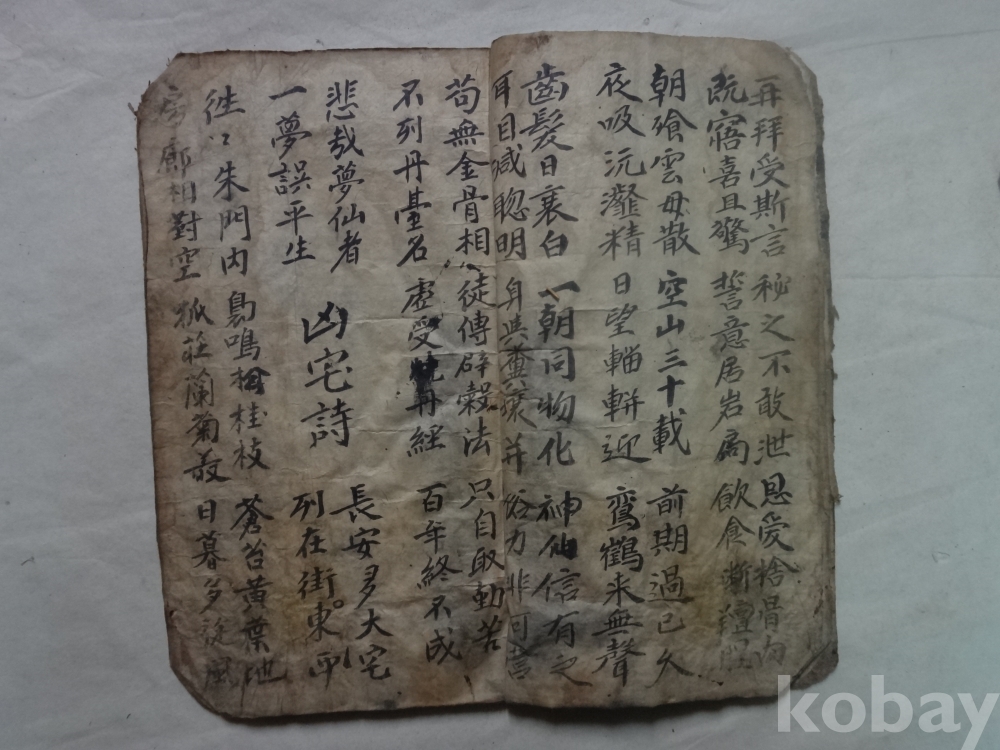 再拜受斯言 秘之不敢泄 恩愛捨骨肉
既寤喜且驚 誓意居岩扃 飲食斷羶腥
朝飱雲母散 空山三十載 前期過已久
夜吸沆瀣精 日望輜軿迎 鸞鶴来無聲
齒髮日衰白 一朝同物化 神仙信有之
耳目减聦明 身與糞壤并 俗力非可營
苟無金骨相 徒傳辟穀法 只自取勤苦
不列丹臺名 虛受燒丹經 百年終不成
悲哉夢仙者
一夢誤平生
凶宅詩
長安多大宅
列在街東西
徃々朱門内 梟鳴松桂枝 蒼苔黄葉地
房廊相對空 狐藏蘭菊叢 日暮多旋風
kobay